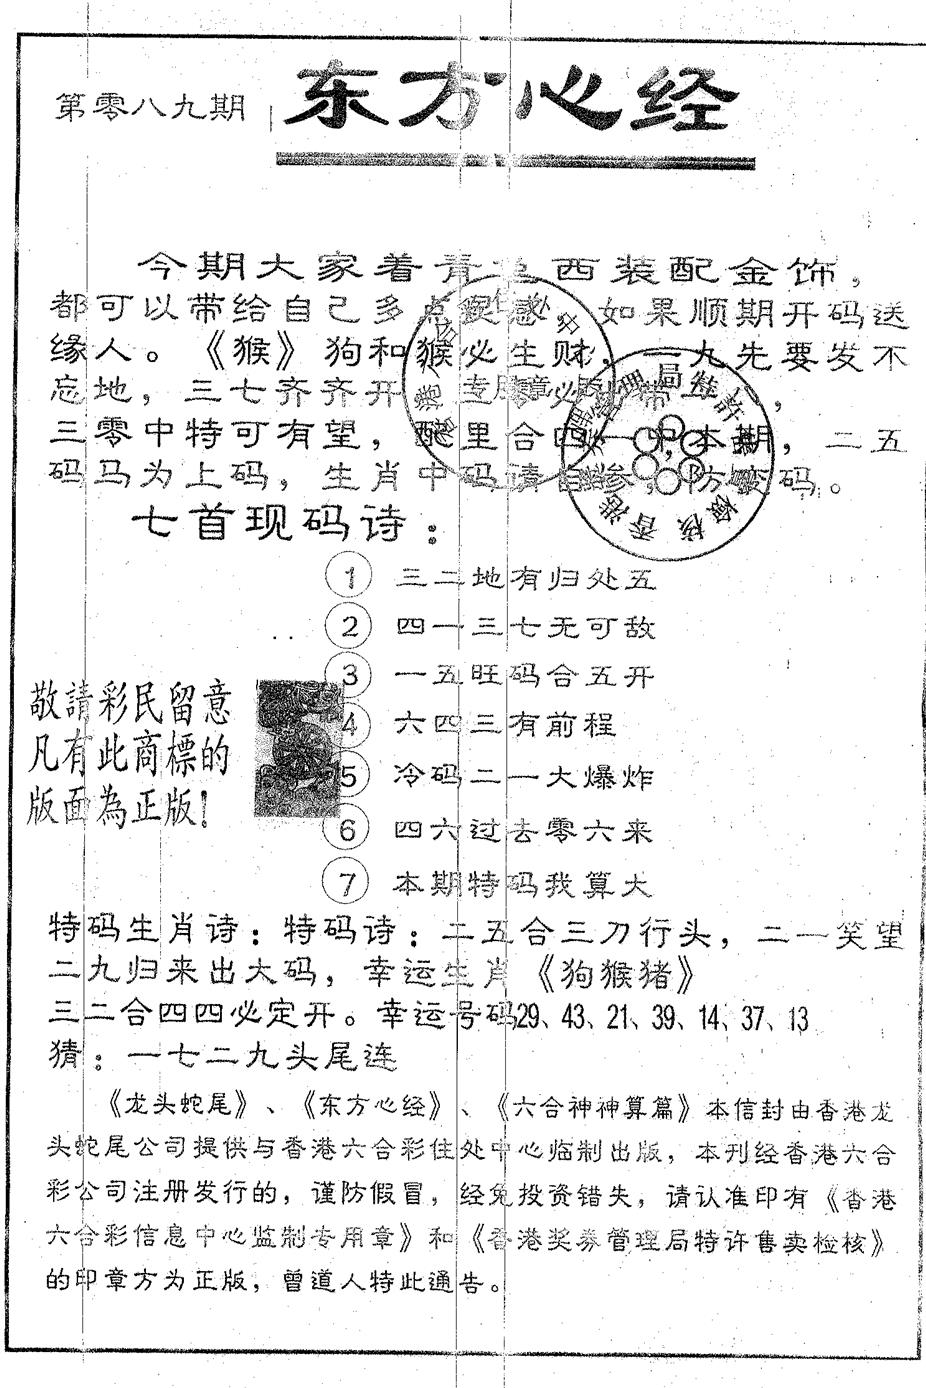 第零八九期
东方心经
今期大家着青色西装配金饰，
都可以带给自己多点灵感。如果顺期开码送
缘人。《猴》狗和猴必生财，一九先要发不
忘地，三七齐齐开
三零中特可有望，配里合四一中本期，二五
码马为上码，生肖中码请自参，防变码。
七首现码诗：
① 三二地有归处五
② 四一三七无可敌
③ 一五旺码合五开
④ 六四三有前程
⑤ 冷码二一大爆炸
⑥ 四六过去零六来
⑦ 本期特码我算大
敬請彩民留意
凡有此商標的
版面為正版！
特码生肖诗：特码诗：二五合三刀行头，二一笑望
二九归来出大码，幸运生肖《狗猴猪》
三二合四四必定开。幸运号码29、43、21、39、14、37、13
猜：一七二九头尾连
《龙头蛇尾》、《东方心经》、《六合神神算篇》本信封由香港龙
头蛇尾公司提供与香港六合彩住处中心临制出版，本刊经香港六合
彩公司注册发行的，谨防假冒，经免投资错失，请认准印有《香港
六合彩信息中心监制专用章》和《香港奖券管理局特许售卖检核》
的印章方为正版，曾道人特此通告。